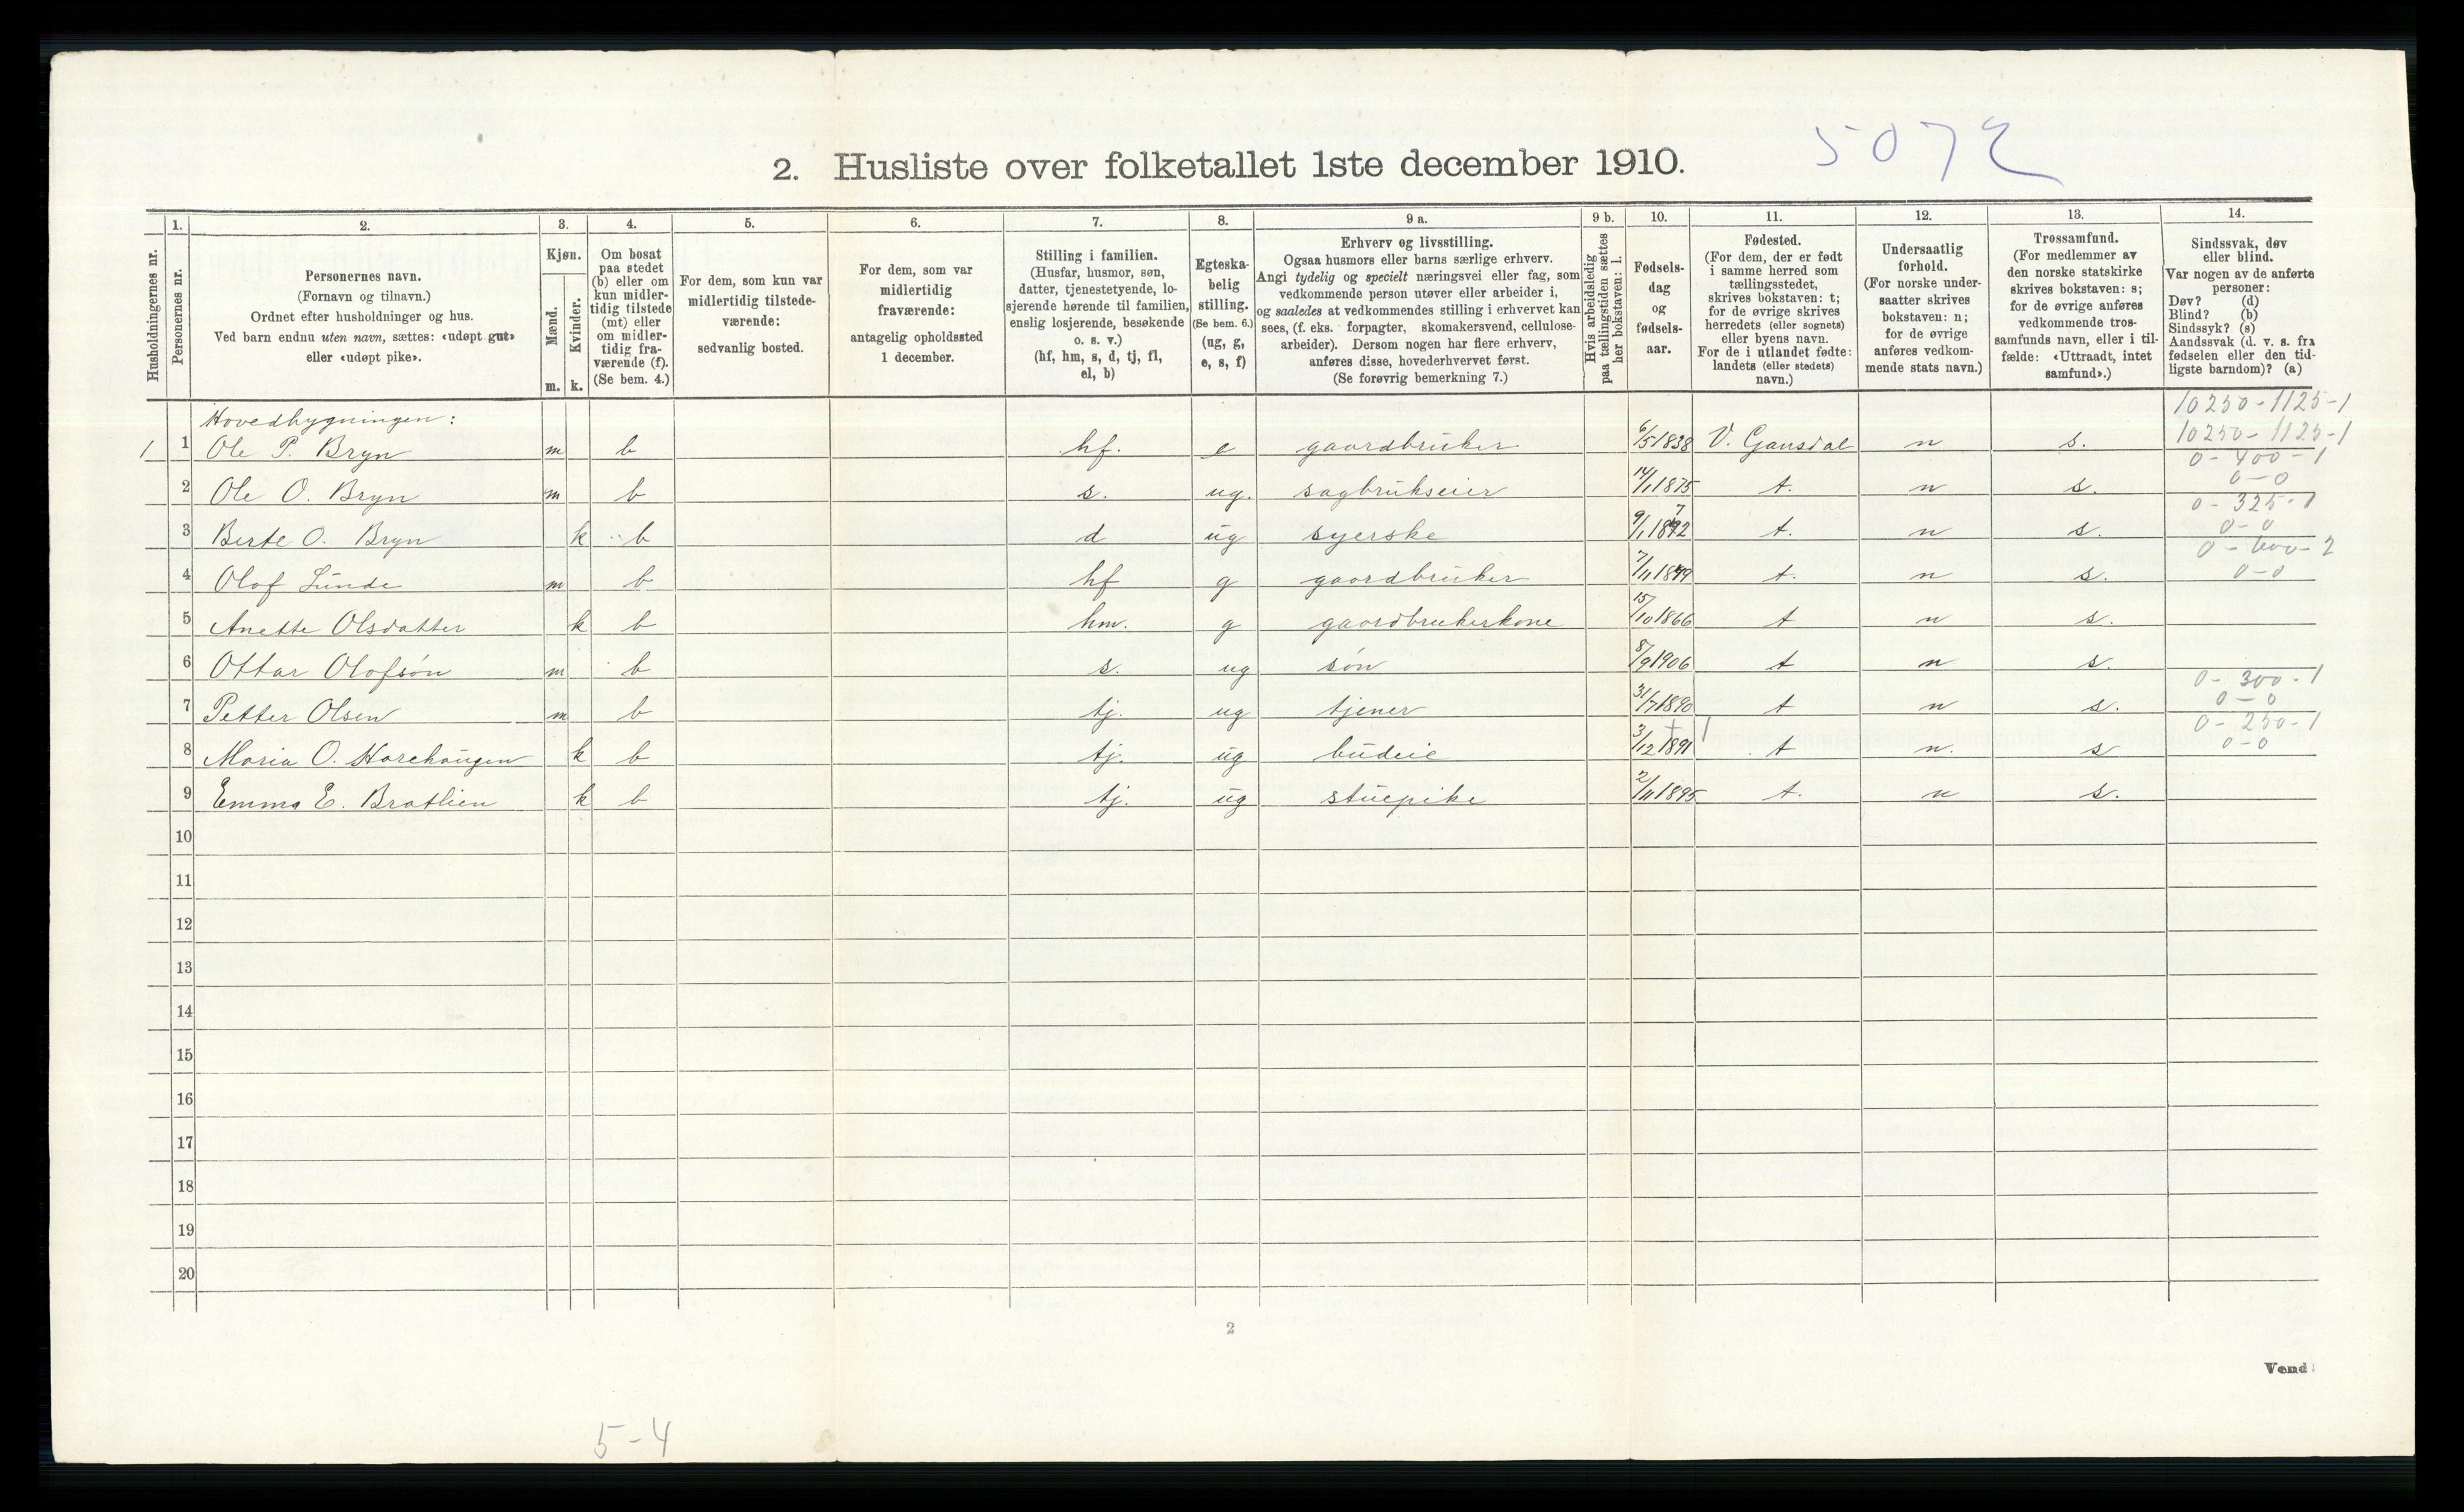 5072
2. Husliste over folketallet 1ste december 1910.
Husholdningernes nr.
1.
Personernes nr.
2.
Personernes navn.
(Fornavn og tilnavn.)
Ordnet efter husholdninger og hus.
Ved barn endnu uten navn, sættes: «udøpt gut»
eller «udøpt pike».
3.
Kjøn.
Mænd.
m.
Kvinder.
k.
4.
Om bosat
paa stedet
(b) eller om
kun midler-
tidig tilstede
(mt) eller
om midler-
tidig fra-
værende (f).
(Se bem. 4.)
5.
For dem, som kun var
midlertidig tilstede-
værende:
sedvanlig bosted.
6.
For dem, som var
midlertidig
fraværende:
antagelig opholdssted
1 december.
7.
Stilling i familien.
(Husfar, husmor, søn,
datter, tjenestetyende, lo-
sjerende hørende til familien,
enslig losjerende, besøkende
o. s. v.)
(hf, hm, s, d, tj, fl,
el, b)
8.
Egteska-
belig
stilling.
(Se bem. 6.)
(ug, g,
e, s, f)
9 a.
Erhverv og livsstilling.
Ogsaa husmors eller barns særlige erhverv.
Angi tydelig og specielt næringsvei eller fag, som
vedkommende person utøver eller arbeider i,
og saaledes at vedkommendes stilling i erhvervet kan
sees, (f. eks. forpagter, skomakersvend, cellulose-
arbeider). Dersom nogen har flere erhverv,
anføres disse, hovederhvervet først.
(Se forøvrig bemerkning 7.)
9 b.
Hvis arbeidsledig
paa tællingstiden sættes
her bokstaven: l.
10.
Fødsels-
dag
og
fødsels-
aar.
11.
Fødested.
(For dem, der er født
i samme herred som
tællingsstedet,
skrives bokstaven: t;
for de øvrige skrives
herredets (eller sognets)
eller byens navn.
For de i utlandet fødte:
landets (eller stedets)
navn.)
12.
Undersaatlig
forhold.
(For norske under-
saatter skrives
bokstaven: n;
for de øvrige
anføres vedkom-
mende stats navn.)
13.
Trossamfund.
(For medlemmer av
den norske statskirke
skrives bokstaven: s;
for de øvrige anføres
vedkommende tros-
samfunds navn, eller i til-
fælde: «Uttraadt, intet
samfund».)
14.
Sindssvak, døv
eller blind.
Var nogen av de anførte
personer:
Døv? (d)
Blind? (b)
Sindssyk? (s)
Aandssvak (d. v. s. fra
fødselen eller den tid-
ligste barndom)? (a)
Hovedbygningen: 10250-1125-1
1 1 Ole P. Bryn m b hf. e gaardbruker 6/5 1838 V. Gausdal n s. 10250-1125-1
0-400-1
2 Ole O. Bryn m b s. ug. sagbrukseier 14/1 1875 t. n s. 0-0
0-325-1
3 Berte O. Bryn k b d ug syerske 9/1 1872 t. n s. 0-0
0-600-2
4 Olof Lunde m b hf g gaardbruker 7/11 1879 t. n s. 0-0
5 Anette Olsdatter k b hm. g gaardbrukerkone 15/10 1866 t n s.
6 Ottar Olofsøn m b s. ug søn 8/9 1906 t n s.
0-300-1
7 Petter Olsen m b tj. ug tjener 31/7 1890 t n s. 0-0
0-250-1
8 Maria O. Harehaugen k b tj. ug budeie 3/12 1891 t n. s 0-0
9 Emma E. Bratlien k b tj. ug stuepike 2/11 1895 t. n s.
10
11
12
13
14
15
16
17
18
19
20
2
Vend!
5-4